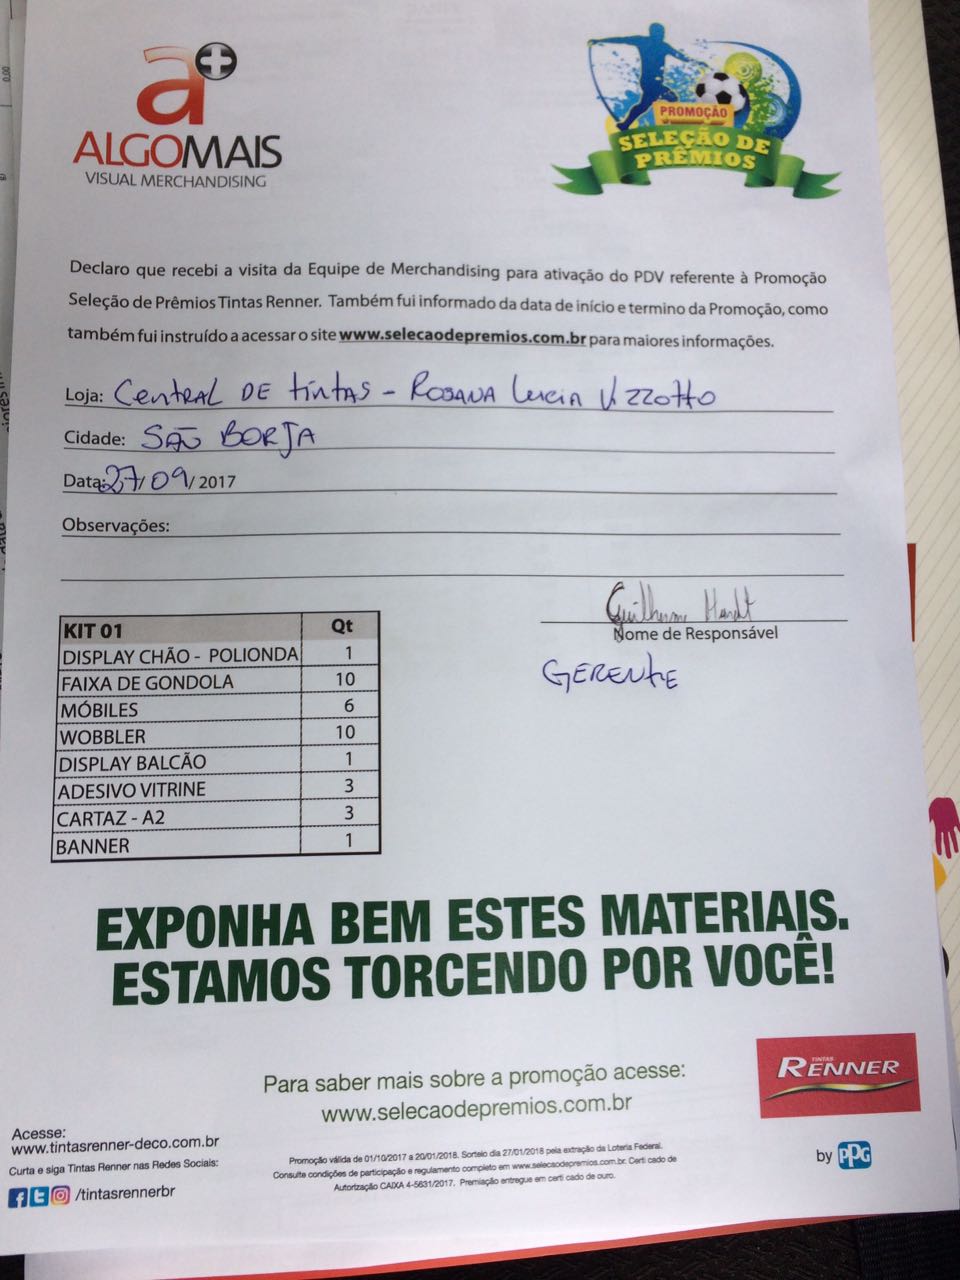 a+
ALGOMAIS
VISUAL MERCHANDISING
PROMOÇÃO
SELEÇÃO DE
PRÊMIOS
Declaro que recebi a visita da Equipe de Merchandising para ativação do PDV referente à Promoção
Seleção de Prêmios Tintas Renner. Também fui informado da data de início e termino da Promoção, como
também fui instruído a acessar o site www.selecaodepremios.com.br para maiores informações.
Loja: Central DE tintas - Rosana Lucia Vizzotto
Cidade: São Borja
Data: 27/09/2017
Observações:
Guilherme Hardt
Nome de Responsável
GERENTE
KIT 01 Qt
DISPLAY CHÃO - POLIONDA 1
FAIXA DE GONDOLA 10
MÓBILES 6
WOBBLER 10
DISPLAY BALCÃO 1
ADESIVO VITRINE 3
CARTAZ - A2 3
BANNER 1
EXPONHA BEM ESTES MATERIAIS.
ESTAMOS TORCENDO POR VOCÊ!
TINTAS
RENNER
Para saber mais sobre a promoção acesse:
www.selecaodepremios.com.br
by PPG
Acesse:
www.tintasrenner-deco.com.br
Curta e siga Tintas Renner nas Redes Sociais:
/tintasrennerbr
Promoção válida de 01/10/2017 a 20/01/2018. Sorteio dia 27/01/2018 pela extração da Loteria Federal.
Consulte condições de participação e regulamento completo em www.selecaodepremios.com.br. Certi cado de
Autorização CAIXA 4-5631/2017. Premiação entregue em certi cado de ouro.